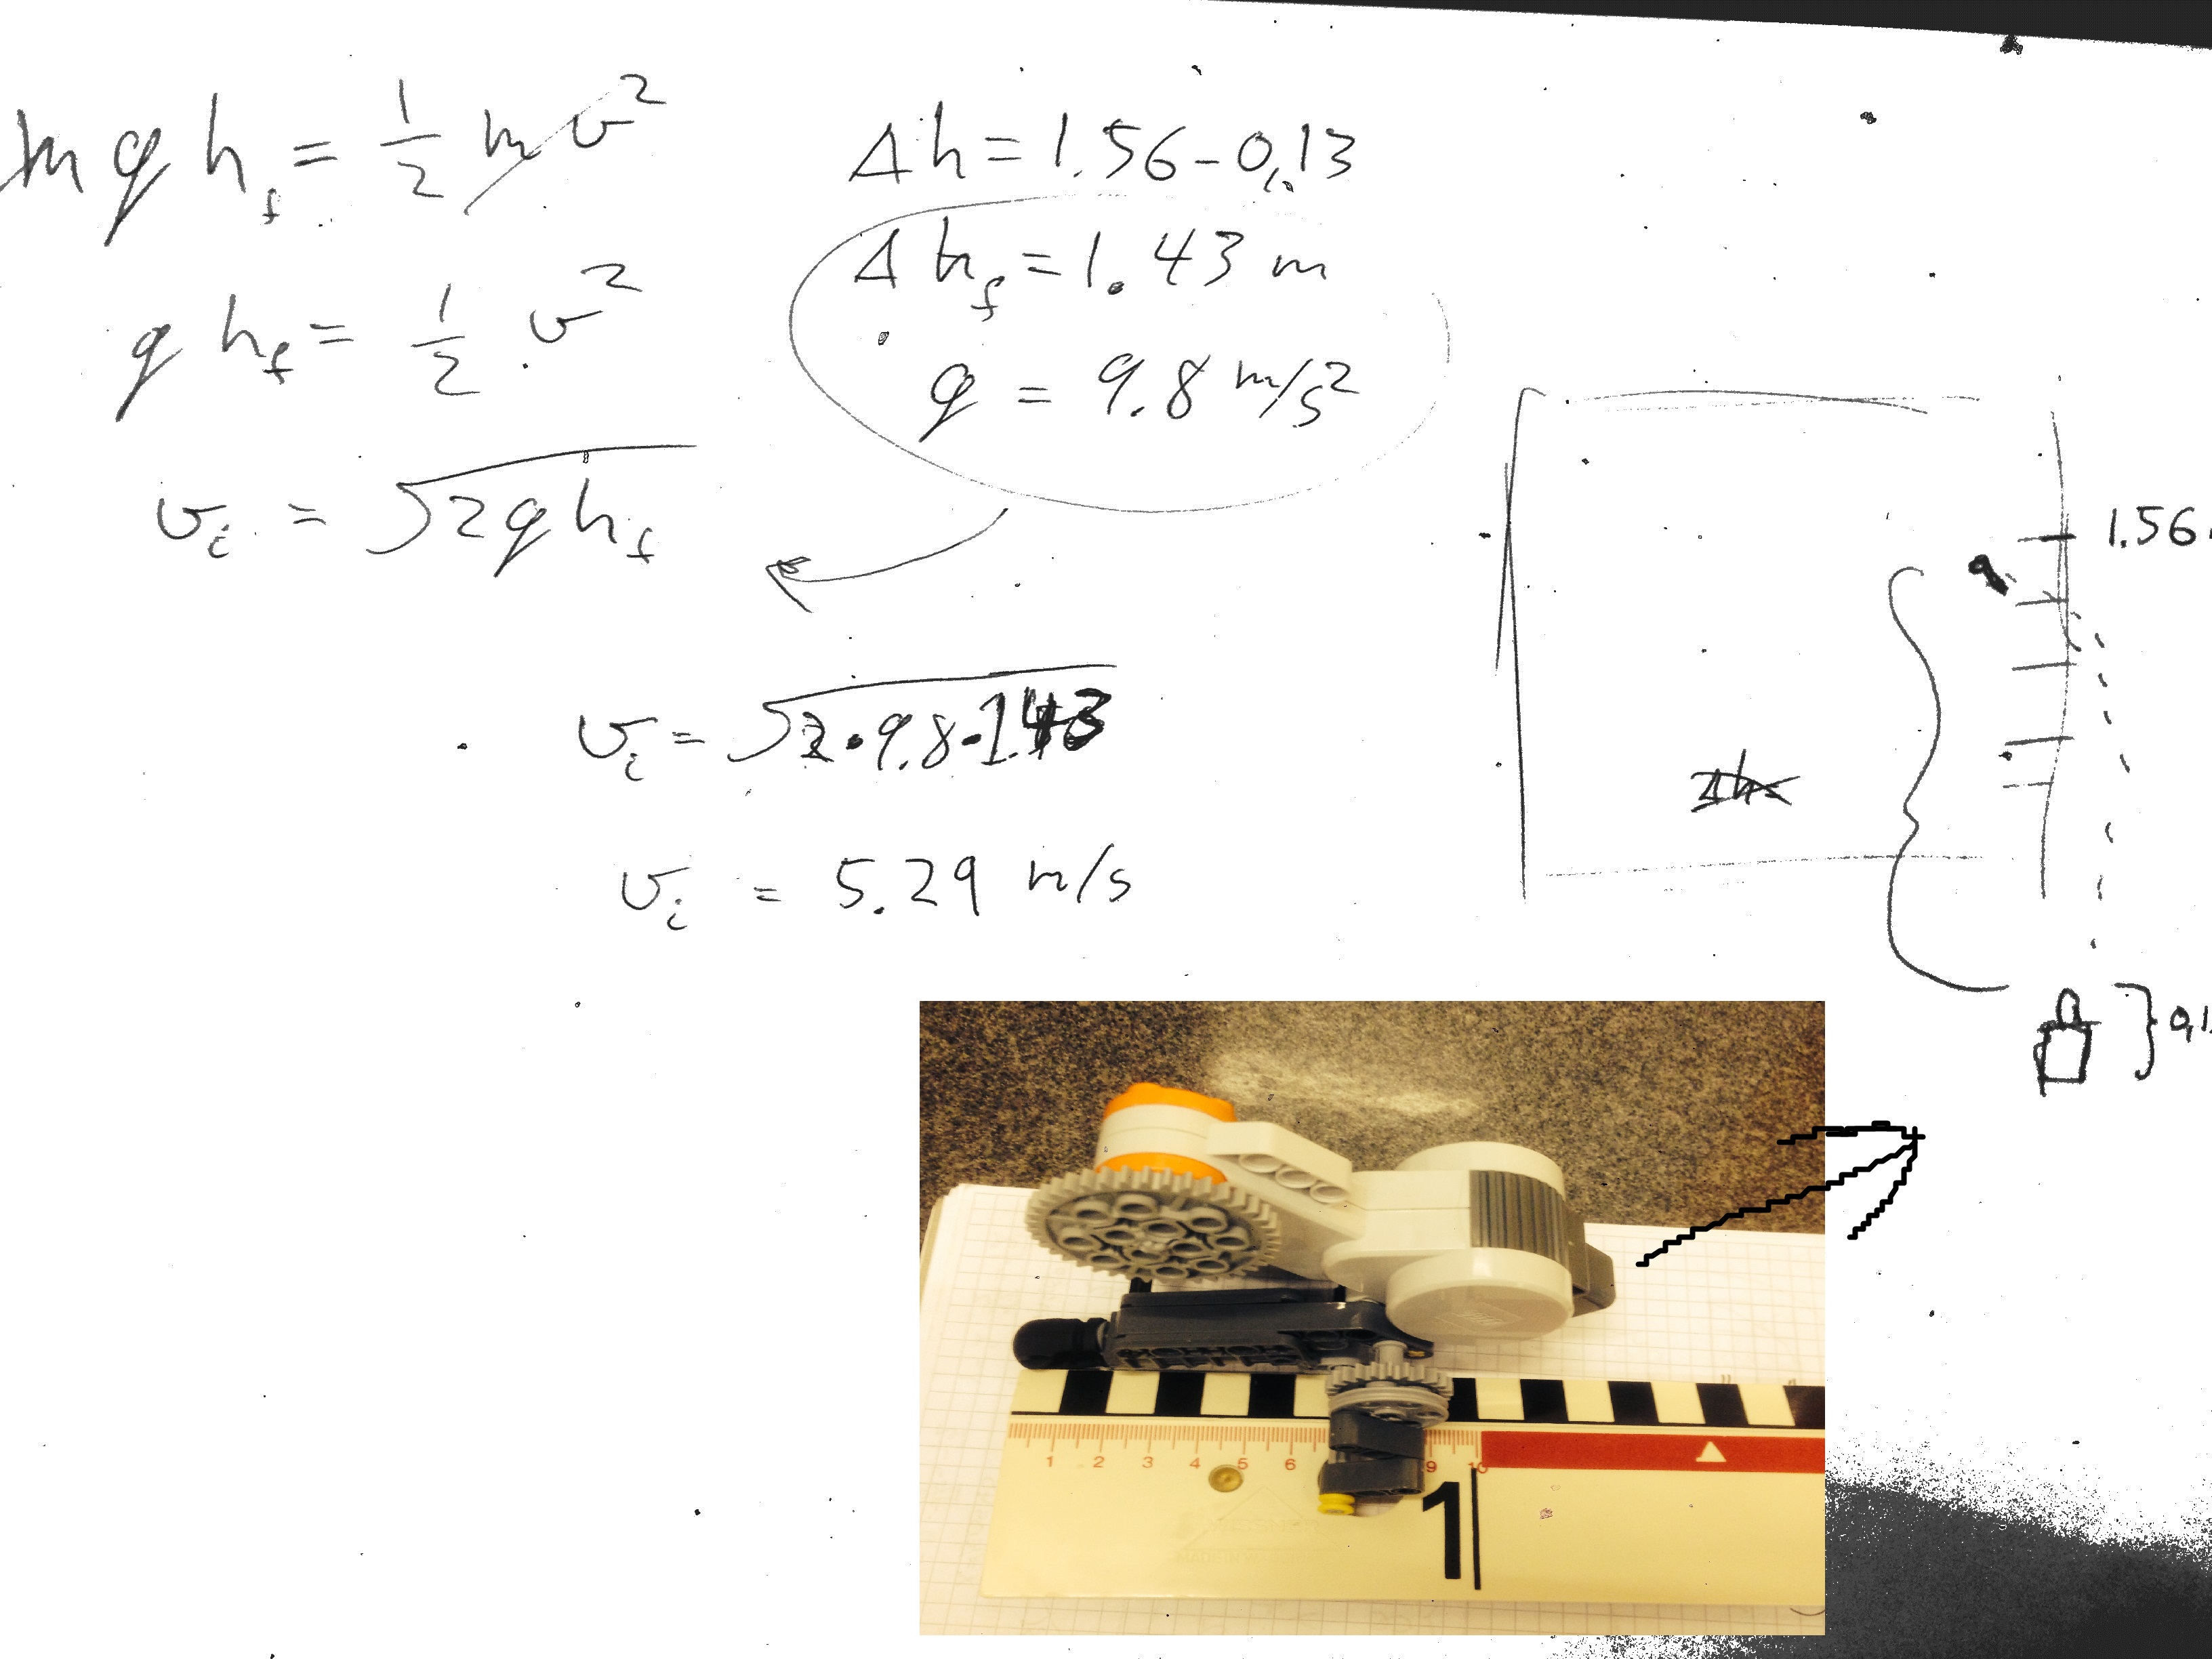 m g h_f = 1/2 m v²
g h_f = 1/2 v²
v_i = √2 g h_f
Δh = 1.56 - 0,13
Δh_f = 1.43 m
g = 9.8 m/s²
v_i = √2 • 9.8 • 1.43
v_i = 5.29 m/s
1.56
Δh
0,1
1 2 3 4 5 6 9 10
1